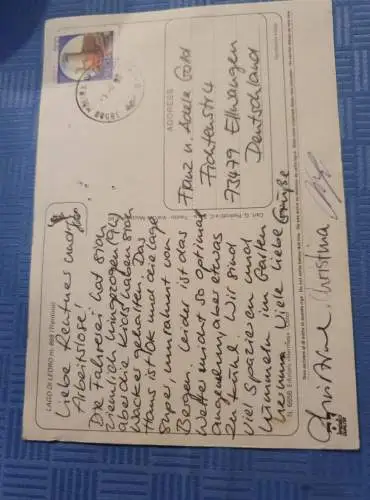 LAGO DI LEDRO m. 669 (Trentino)
Liebe Rentner und
Arbeitslose!
Die Fahrerei hat sich
ziemlich hingezogen (9½)
aber die Kids haben sich
wacker gehalten. Das
Haus ist ok und die Lage
super, umrahmt von
Bergen. Leider ist das
Wetter nicht so optimal
angenehm, aber etwas
zu kühl. Wir sind
viel spazieren und
lümmeln im Garten
herum. Viele liebe Grüße
Christina
ADDRESS
Franz u. Adele Gold
Fichtenstr 4
73479 Ellwangen
Deutschland